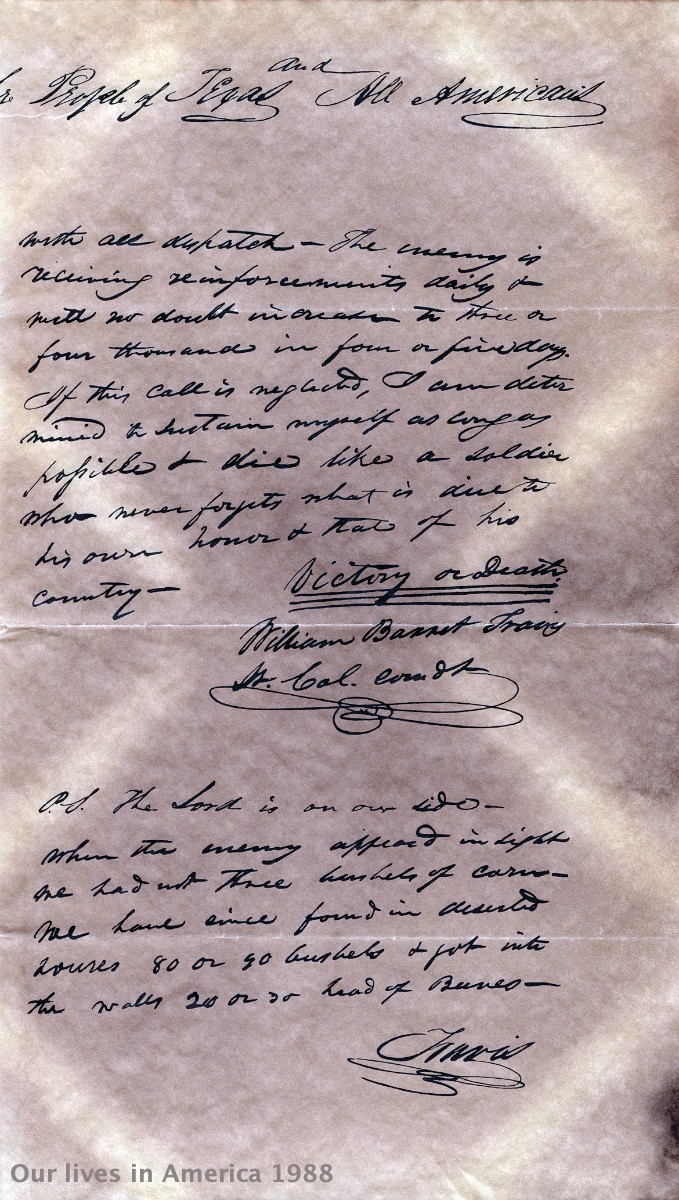 People of Texas and All Americans
with all dispatch — The enemy is
receiving reinforcements daily &
will no doubt increase to three or
four thousand in four or five days.
If this call is neglected, I am deter
mined to sustain myself as long as
possible & die like a soldier
who never forgets what is due to
his own honor & that of his
country —
Victory or Death.
William Barret Travis
Lt. Col. comdt
P.S. The Lord is on our side —
when the enemy appeard in sight
we had not three bushels of corn —
we have since found in deserted
houses 80 or 90 bushels & got into
the walls 20 or 30 head of Beeves —
Travis
Our lives in America 1988